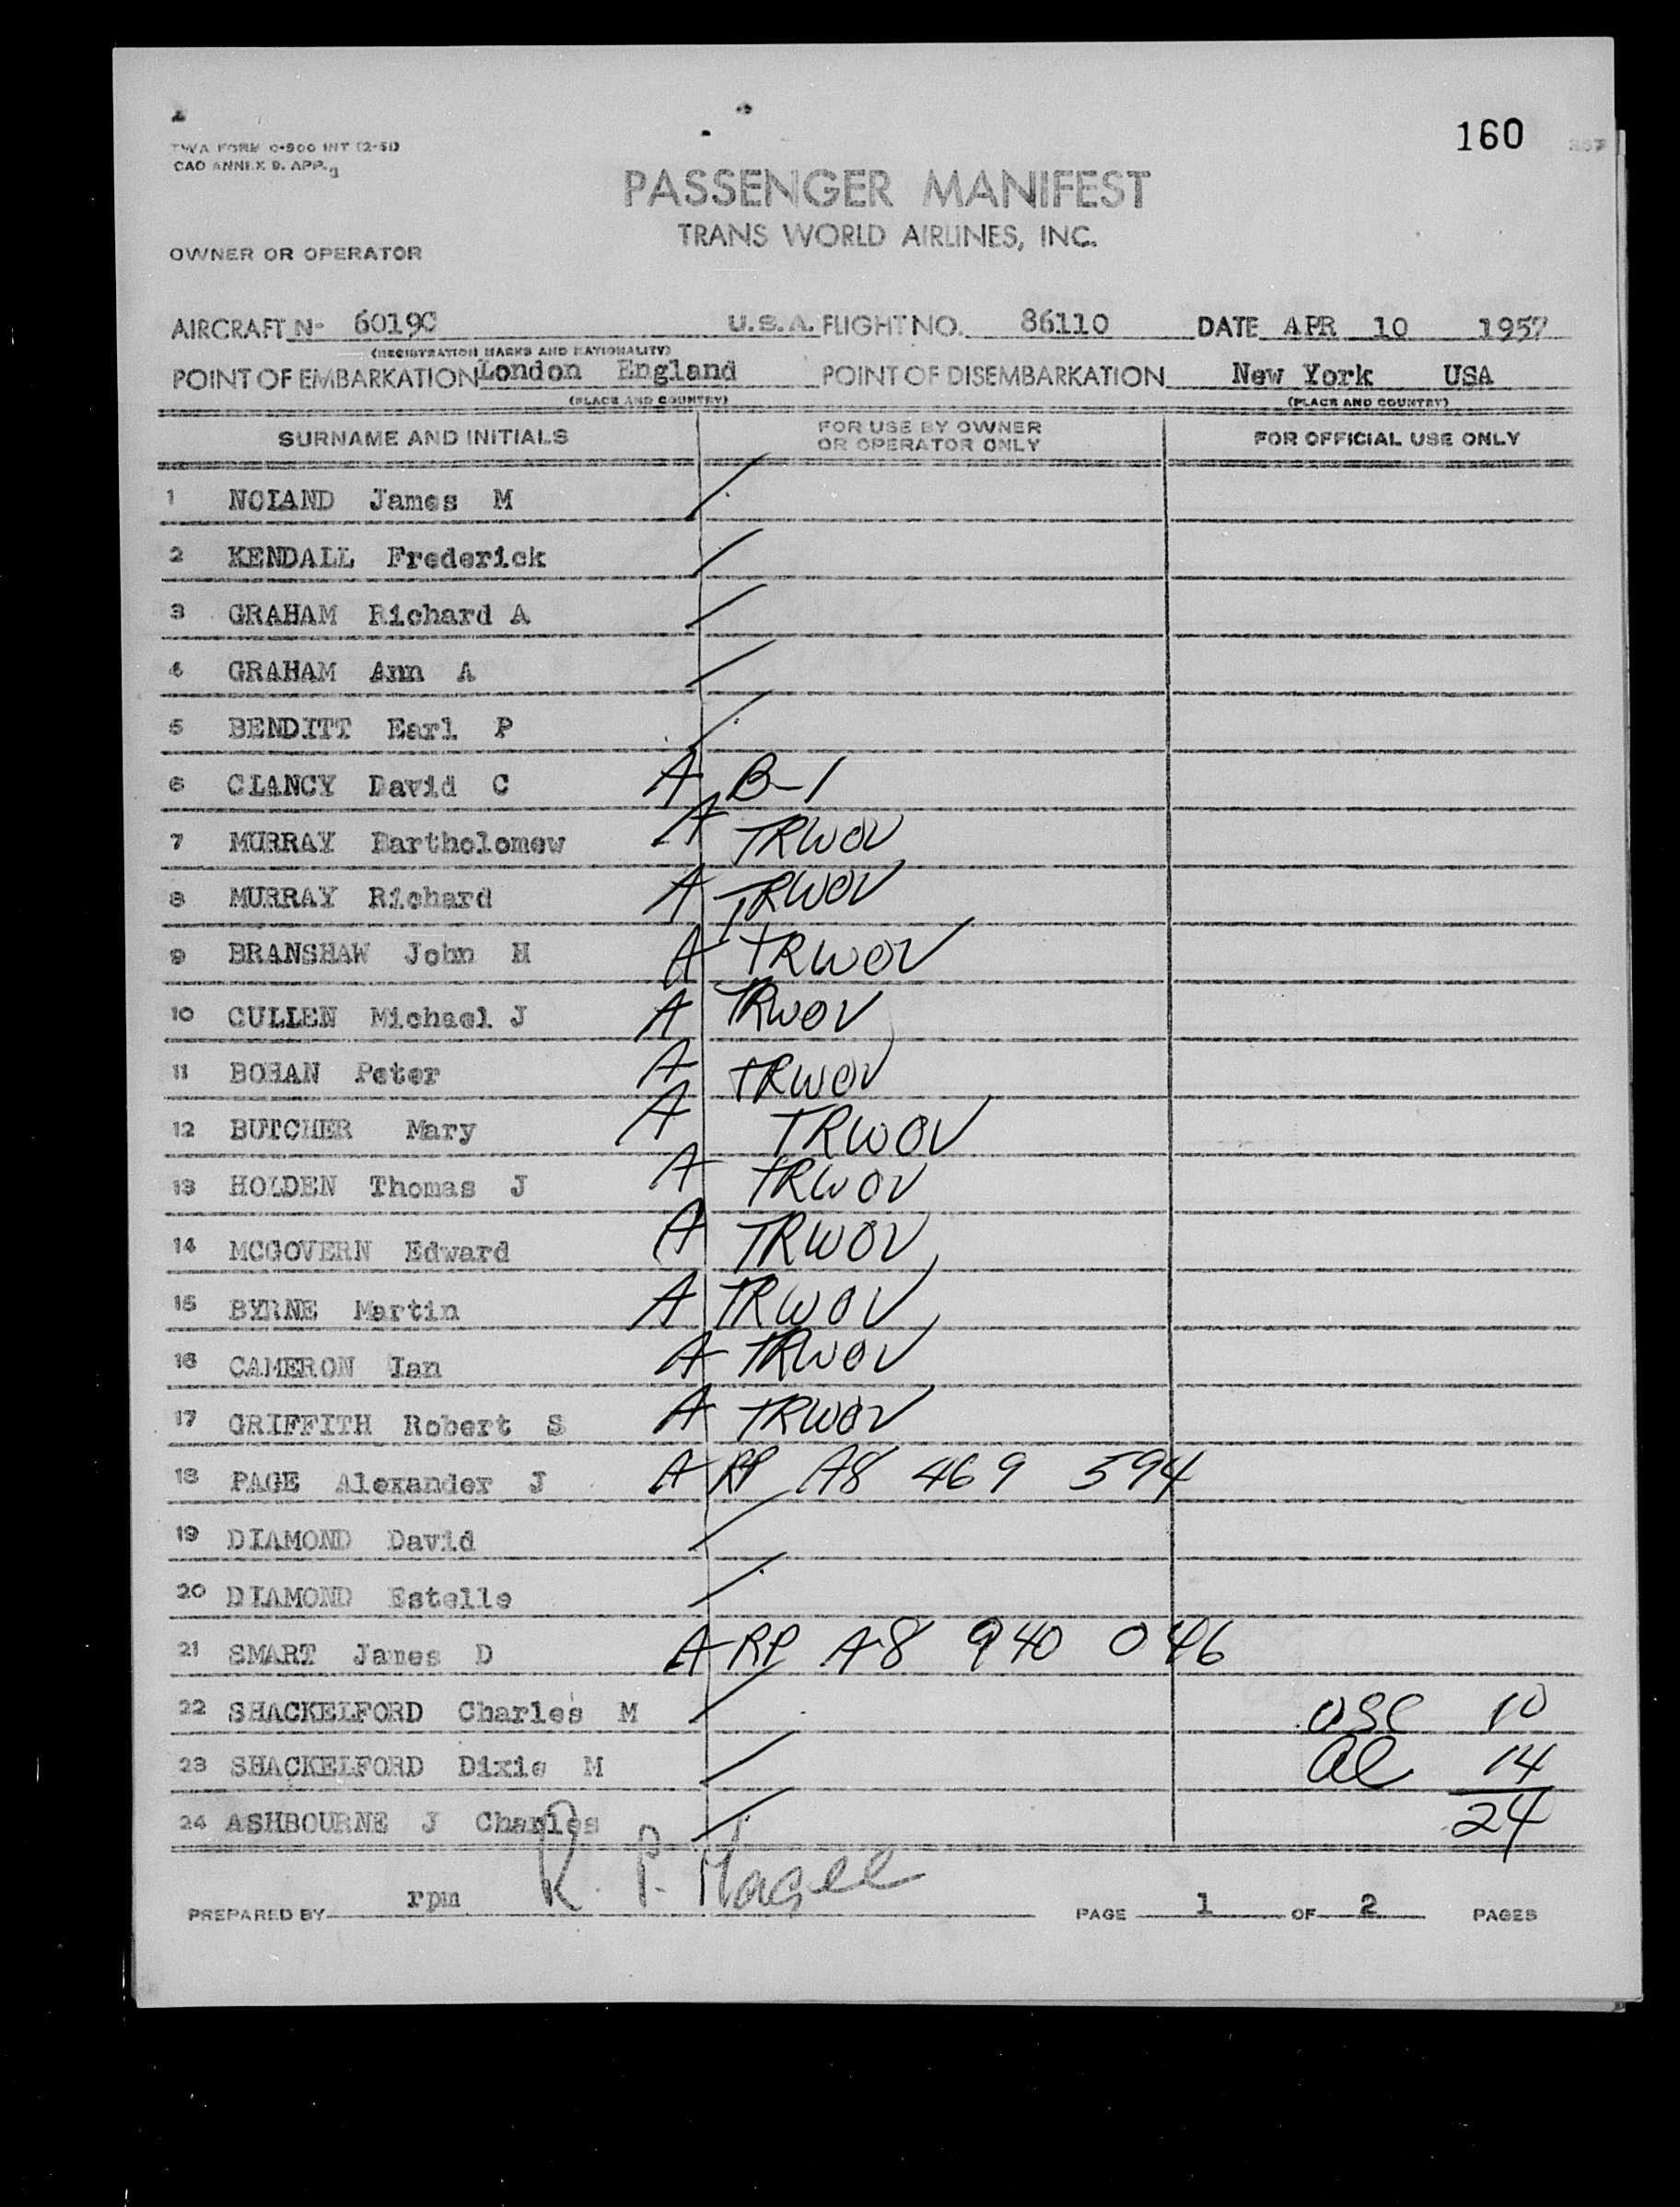 160
TWA FORM O-900 INT (2-51)
CAO ANNEX 9. APP. 3
PASSENGER MANIFEST
TRANS WORLD AIRLINES, INC.
OWNER OR OPERATOR
AIRCRAFT N- 6019C U.S.A. FLIGHT NO. 86110 DATE APR 10 1957
(REGISTRATION MARKS AND NATIONALITY)
POINT OF EMBARKATION London England POINT OF DISEMBARKATION New York USA
(PLACE AND COUNTRY) (PLACE AND COUNTRY)
SURNAME AND INITIALS FOR USE BY OWNER OR OPERATOR ONLY FOR OFFICIAL USE ONLY
1 NOLAND James M
2 KENDALL Frederick
3 GRAHAM Richard A
4 GRAHAM Ann A
5 BENDITT Earl P
6 CLANCY David C A B-1
7 MURRAY Bartholomew A TRWOV
8 MURRAY Richard A TRWOV
9 BRANSHAW John H A TRWOV
10 CULLEN Michael J A TRWOV
11 BOHAN Peter A TRWOV
12 BUTCHER Mary A TRWOV
13 HOLDEN Thomas J A TRWOV
14 MCGOVERN Edward A TRWOV
15 BYRNE Martin A TRWOV
16 CAMERON Ian A TRWOV
17 GRIFFITH Robert S A TRWOV
18 PAGE Alexander J A RP A8 469 594
19 DIAMOND David
20 DIAMOND Estelle
21 SMART James D A RP A8 940 046
22 SHACKELFORD Charles M USC 10
23 SHACKELFORD Dixie M al 14
24 ASHBOURNE J Charles 24
PREPARED BY rpm R. P. Magee PAGE 1 OF 2 PAGES